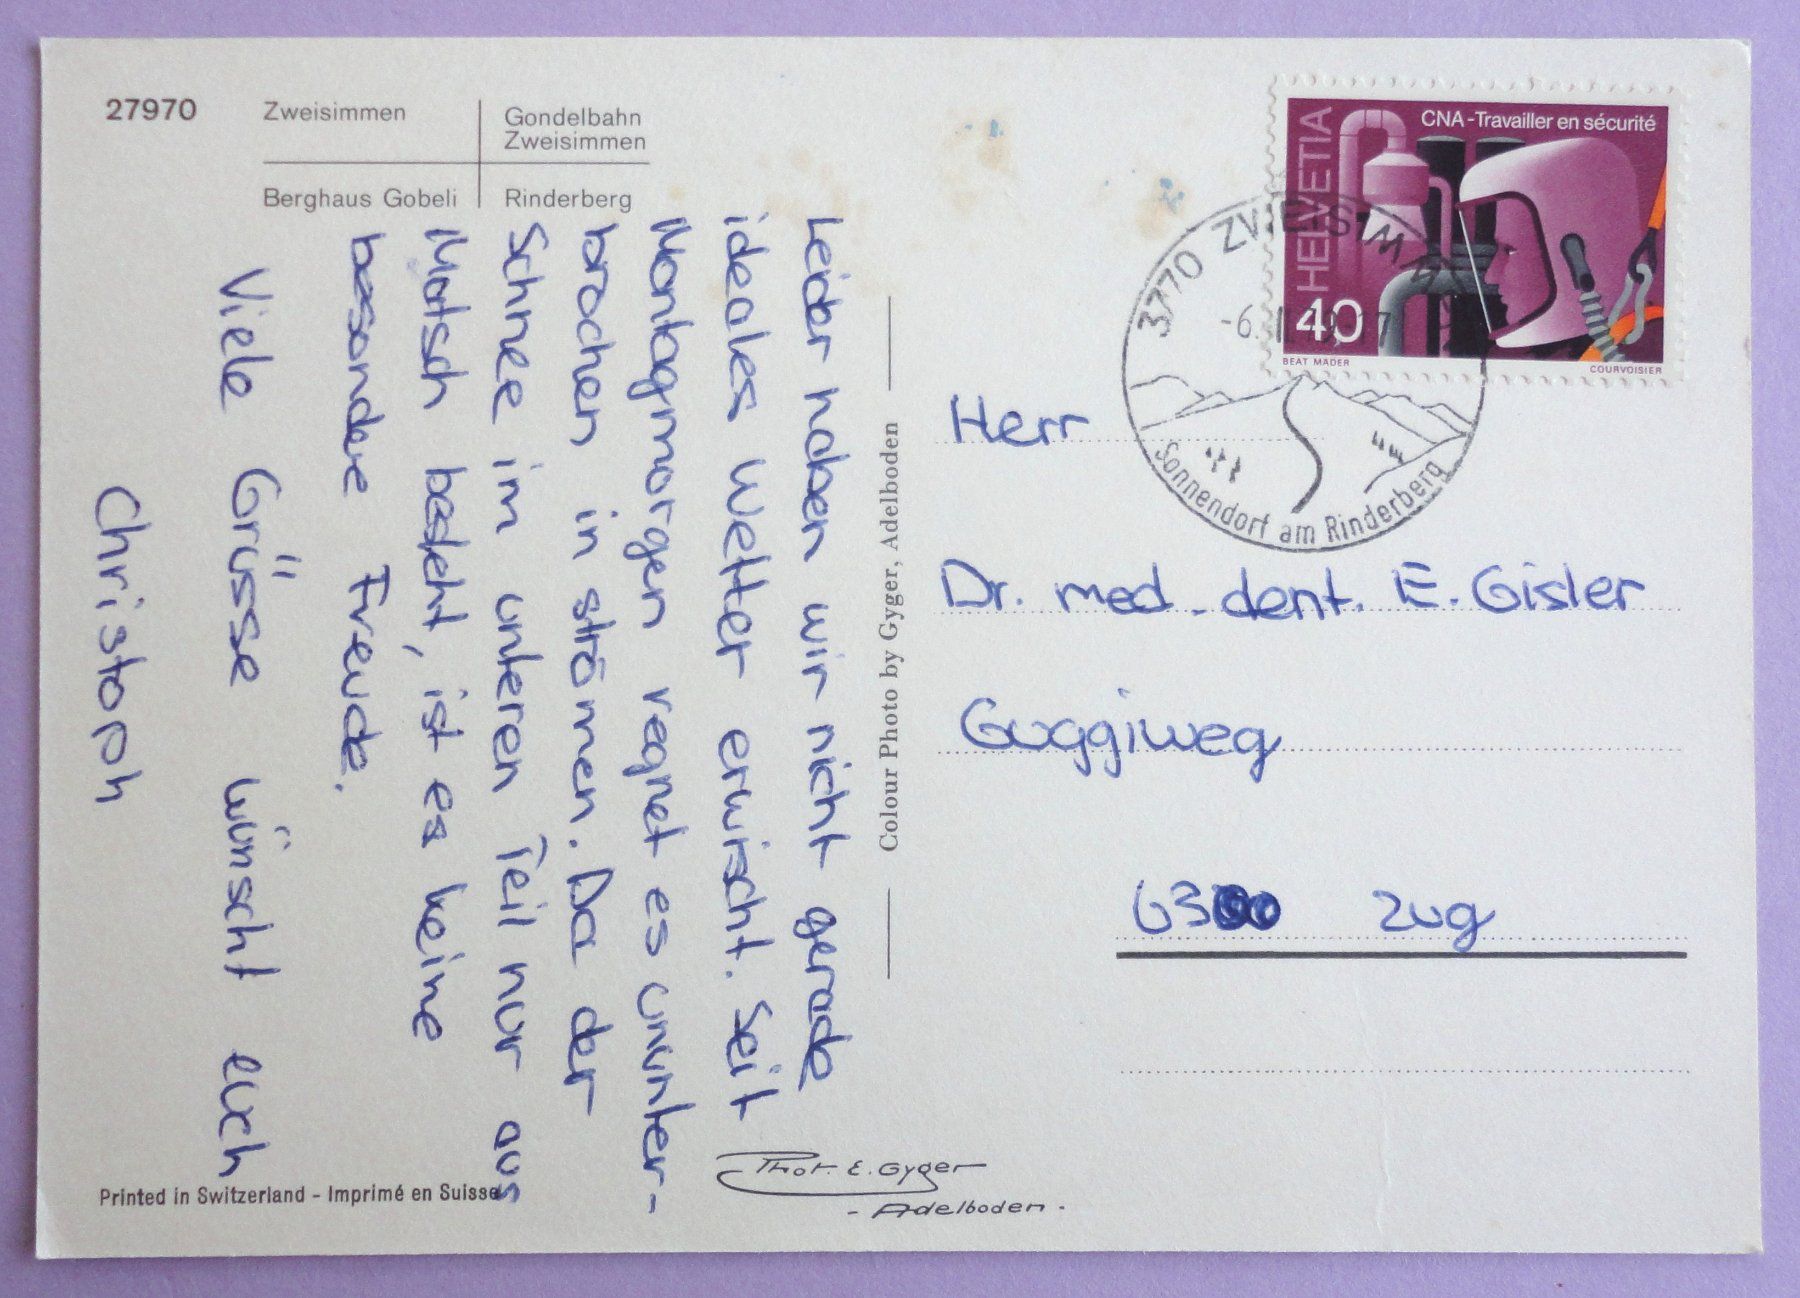 27970
Zweisimmen
Gondelbahn
Zweisimmen
Berghaus Gobeli
Rinderberg
Leider haben wir nicht gerade
ideales Wetter erwischt. Seit
Montagmorgen regnet es ununter-
brochen in strömen. Da der
Schnee im unteren Teil nur aus
Matsch besteht, ist es keine
besondere Freude.
Viele Grüsse wünscht euch
Christoph
Printed in Switzerland - Imprimé en Suisse
Colour Photo by Gyger, Adelboden
Phot. E. Gyger
- Adelboden -
HELVETIA
CNA - Travailler en sécurité
40
BEAT MÄDER
COURVOISIER
3770 ZWEISIMMEN
Sonnendorf am Rinderberg
Herr
Dr. med. dent. E. Gisler
Guggiweg
6300 Zug